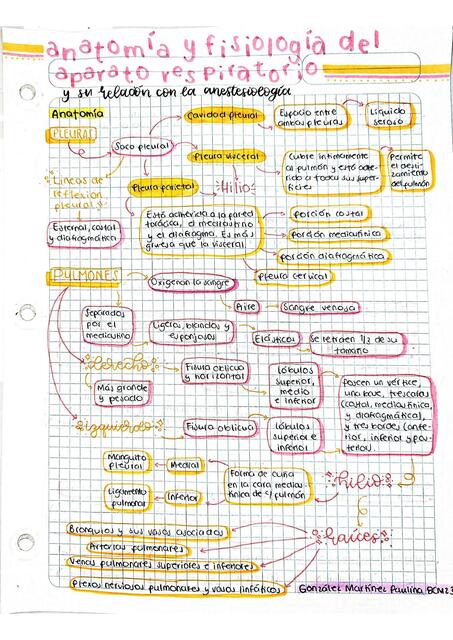 anatomía y fisiología del
aparato respiratorio
y su relación con la anestesiología
Anatomía
PLEURAS
Saco pleural
Cavidad pleural
Espacio entre
ambas pleuras
Líquido
seroso
Pleura visceral
Cubre íntimamente
al pulmón y está adhe-
rida a todas sus super-
ficies
Permite
el desli-
zamiento
del pulmón
Líneas de
reflexión
pleural
Pleura parietal
Hilio
Esternal, costal
y diafragmática
Está adherida a la pared
torácica, el mediastino
y el diafragma. Es más
gruesa que la visceral.
porción costal
porción mediastínica
porción diafragmática
pleura cervical
PULMONES
Oxigenan la sangre
Aire
Sangre venosa
Separados
por el
mediastino
Ligeros, blandos y
esponjosos
Elásticos
Se retraen 1/2 de su
tamaño
derecho
Fisura oblicua
y horizontal
lóbulos
superior,
medio
e inferior
Poseen un vértice,
una base, tres caras
(costal, mediastínica,
y diafragmática),
y tres bordes (ante-
rior, inferior y pos-
terior).
Más grande
y pesado
izquierdo
Fisura oblicua
lóbulos
superior e
inferior
Manguito
pleural
Medial
Forma de cuña
en la cara medias-
tínica de c/ pulmón
hilio
Ligamento
pulmonar
Inferior
Bronquios y sus vasos asociados
raíces
Arterias pulmonares
Venas pulmonares superiores e inferiores
Plexos nerviosos pulmonares y vasos linfáticos
González Martínez Paulina